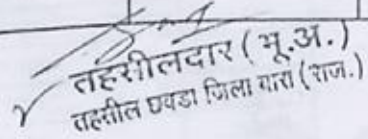 तहसीलदार (भू.अ.)
तहसील छबडा जिला बारा (राज.)